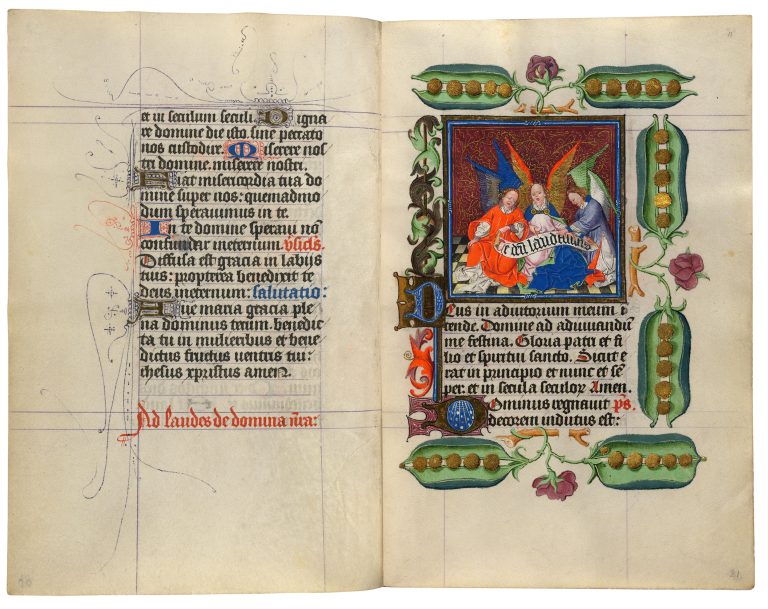 et in seculum seculi. Digna
re domine die isto sine peccato
nos custodire. Miserere nos
tri domine. miserere nostri.
Fiat misericordia tua do
mine super nos: quemadmo
dum speravimus in te.
In te domine speravi no
confundar ineternum. v̄sicls.
Diffusa est gracia in labijs
tuis: propterea benedixit te
deus ineternum: salutatio:
Aue maria gracia ple
na dominus tecum. benedic
ta tu in mulieribus et bene
dictus fructus uentris tui:
ihesus xpristus amen.
Ad laudes de domina nr̄a:
Te deū laudamus
Deus in adiutorium meum i
tende. Domine ad adiuuandū
me festina. Gloria patri et fi
lio et spiritui sancto. Sicut e
rat in principio et nunc et sē
per: et in secula seculoꝝ Amen.
Dominus regnauit p̄s.
decorem indutus est: